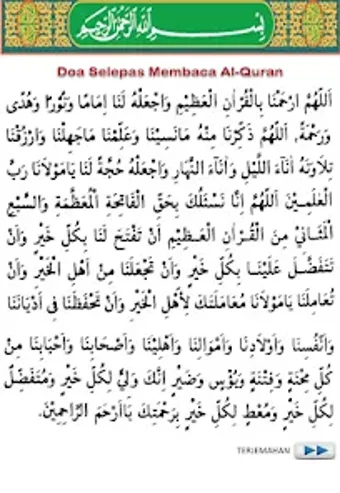 بِسْمِ اللهِ الرَّحْمٰنِ الرَّحِيْمِ
Doa Selepas Membaca Al-Quran
اَللّٰهُمَّ ارْحَمْنَا بِالْقُرْاٰنِ الْعَظِيْمِ وَاجْعَلْهُ لَنَا اِمَامًا وَنُوْرًا وَهُدًى
وَرَحْمَةً، اَللّٰهُمَّ ذَكِّرْنَا مِنْهُ مَانَسِيْنَا وَعَلِّمْنَا مَاجَهِلْنَا وَارْزُقْنَا
تِلَاوَتَهُ اٰنَآءَ اللَّيْلِ وَاٰنَآءَ النَّهَارِ وَاجْعَلْهُ حُجَّةً لَنَا يَامَوْلَانَا رَبَّ
الْعٰلَمِيْنَ اَللّٰهُمَّ اِنَّا نَسْئَلُكَ بِحَقِّ الْفَاتِحَةِ الْمُعَظَّمَةِ وَالسَّبْعِ
الْمَثَانِيْ مِنَ الْقُرْاٰنِ الْعَظِيْمِ اَنْ تَفْتَحَ لَنَا بِكُلِّ خَيْرٍ وَاَنْ
تَتَفَضَّلَ عَلَيْنَا بِكُلِّ خَيْرٍ وَاَنْ تَجْعَلَنَا مِنْ اَهْلِ الْخَيْرِ وَاَنْ
تُعَامِلَنَا يَامَوْلَانَا مُعَامَلَتَكَ لِاَهْلِ الْخَيْرِ وَاَنْ تَحْفَظَنَا فِى اَدْيَانِنَا
وَاَنْفُسِنَا وَاَوْلَادِنَا وَاَمْوَالِنَا وَاَهْلِيْنَا وَاَصْحَابِنَا وَاَحْبَابِنَا مِنْ
كُلِّ مِحْنَةٍ وَفِتْنَةٍ وَبُؤْسٍ وَضَيْرٍ اِنَّكَ وَلِيٌّ لِكُلِّ خَيْرٍ وَمُتَفَضِّلٌ
لِكُلِّ خَيْرٍ وَمُعْطٍ لِكُلِّ خَيْرٍ بِرَحْمَتِكَ يَااَرْحَمَ الرَّاحِمِيْنَ.
TERJEMAHAN